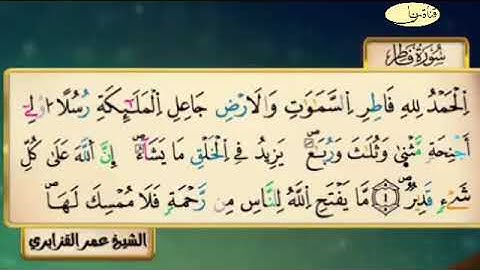 قناة سنا
سُورَةُ فَاطِر
اِ۬لْحَمْدُ لِلهِ فَاطِرِ اِ۬لسَّمَٰوَٰتِ وَالَارْضِ جَاعِلِ اِ۬لْمَلَٰٓئِكَةِ رُسُلاً ا۟وْلِےٓ
أَجْنِحَةٖ مَّثْنۭيٰ وَثُلَٰثَ وَرُبَٰعَۖ يَزِيدُ فِے اِ۬لْخَلْقِ مَا يَشَآءُۖ اِنَّ اَ۬للَّهَ عَلَىٰ كُلِّ
شَےْءٖ قَدِيرٞۖ ١ مَّا يَفْتَحِ اِ۬للَّهُ لِلنَّاسِ مِن رَّحْمَةٖ فَلَا مُمْسِكَ لَهَاۖ
الشيخ عمر القزابري